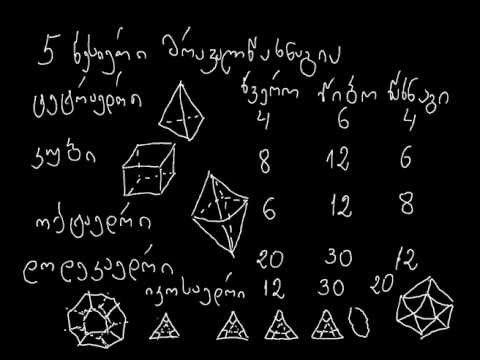 5 წესიერი მრავალწახნაგია
წვერო წიბო წახნაგი
ტეტრაედრი 4 6 4
კუბი 8 12 6
ოქტაედრი 6 12 8
დოდეკაედრი 20 30 12
იკოსაედრი 12 30 20